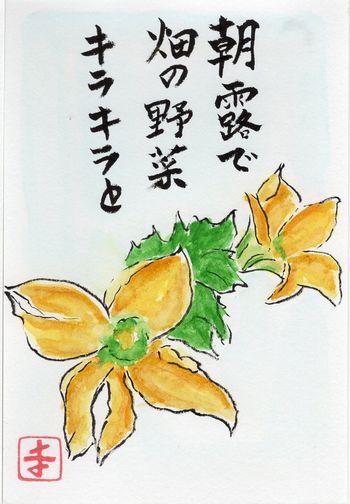 朝露で
畑の野菜
キラキラと